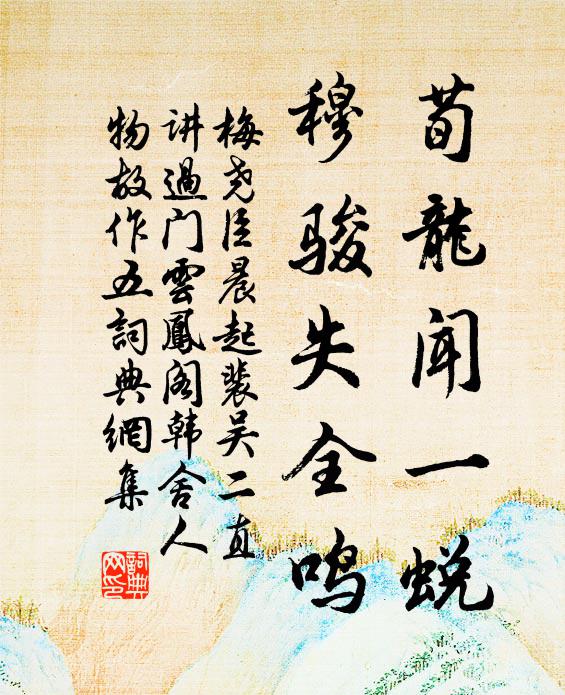 荀龍闻一蜕
穆骏失全鸣
梅尧臣晨起裴吴二直
讲過门雲鳳阁韩舍人
物故作五詞典網集
詞典
网印